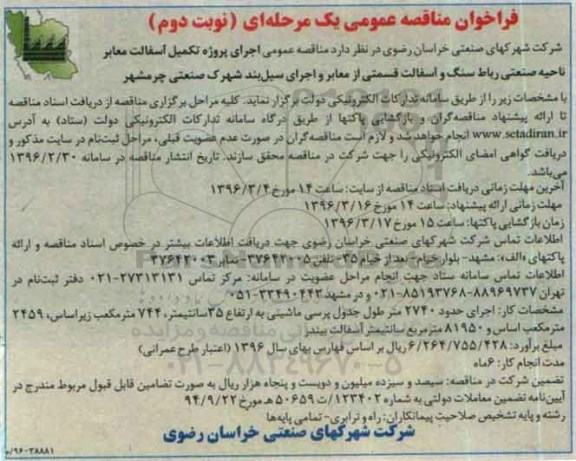 فراخوان مناقصه عمومی یک مرحله‌ای (نوبت دوم)
شرکت شهرکهای صنعتی خراسان رضوی در نظر دارد مناقصه عمومی اجرای پروژه تکمیل آسفالت معابر
ناحیه صنعتی رباط سنگ و آسفالت قسمتی از معابر و اجرای سیل‌بند شهرک صنعتی چرمشهر
با مشخصات زیر را از طریق سامانه تدارکات الکترونیکی دولت برگزار نماید. کلیه مراحل برگزاری مناقصه از دریافت اسناد مناقصه
تا ارائه پیشنهاد مناقصه‌گران و بازگشایی پاکتها از طریق درگاه سامانه تدارکات الکترونیکی دولت (ستاد) به آدرس
www.setadiran.ir انجام خواهد شد و لازم است مناقصه‌گران در صورت عدم عضویت قبلی، مراحل ثبت‌نام در سایت مذکور و
دریافت گواهی امضای الکترونیکی را جهت شرکت در مناقصه محقق سازند. تاریخ انتشار مناقصه در سامانه ۱۳۹۶/۲/۳۰
می‌باشد.
آخرین مهلت زمانی دریافت اسناد مناقصه از سایت: ساعت ۱۴ مورخ ۱۳۹۶/۳/۴
مهلت زمانی ارائه پیشنهاد: ساعت ۱۴ مورخ ۱۳۹۶/۳/۱۶
زمان بازگشایی پاکتها: ساعت ۱۵ مورخ ۱۳۹۶/۳/۱۷
اطلاعات تماس شرکت شهرکهای صنعتی خراسان رضوی جهت دریافت اطلاعات بیشتر در خصوص اسناد مناقصه و ارائه
پاکتهای «الف»: مشهد- بلوار خیام- بعد از خیام ۳۵- تلفن ۳۷۶۴۲۰۰۵- نمابر ۳۷۶۴۲۰۰۳
اطلاعات تماس سامانه ستاد جهت انجام مراحل عضویت در سامانه: مرکز تماس ۲۷۳۱۳۱۳۱-۰۲۱ دفتر ثبت‌نام در
تهران ۸۸۹۶۹۷۳۷-۸۵۱۹۳۷۶۸-۰۲۱ و در مشهد ۳۳۴۹۰۴۴۳-۰۵۱
مشخصات کار: اجرای حدود ۲۷۴۰ متر طول جدول پرسی ماشینی به ارتفاع ۳۵سانتیمتر، ۷۴۴ مترمکعب زیراساس، ۲۴۵۹
مترمکعب اساس و ۸۱۹۵۰ مترمربع سانتیمتر آسفالت بیندر
مبلغ برآورد: ۶/۲۶۴/۷۵۵/۴۲۸ ریال بر اساس فهارس بهای سال ۱۳۹۶ (اعتبار طرح عمرانی)
مدت انجام کار: ۶ماه
تضمین شرکت در مناقصه: سیصد و سیزده میلیون و دویست و پنجاه هزار ریال به صورت تضامین قابل قبول مربوط مندرج در
آیین‌نامه تضمین معاملات دولتی به شماره ۱۲۳۴۰۲/ت ۵۰۶۵۹ هـ مورخ ۹۴/۹/۲۲
رشته و پایه تشخیص صلاحیت پیمانکاران: راه و ترابری- تمامی پایه‌ها
شرکت شهرکهای صنعتی خراسان رضوی
۹۶۰۲۸۸۸۱/م
۰۲۱-۸۸۳۴۹۶۷۰-۵